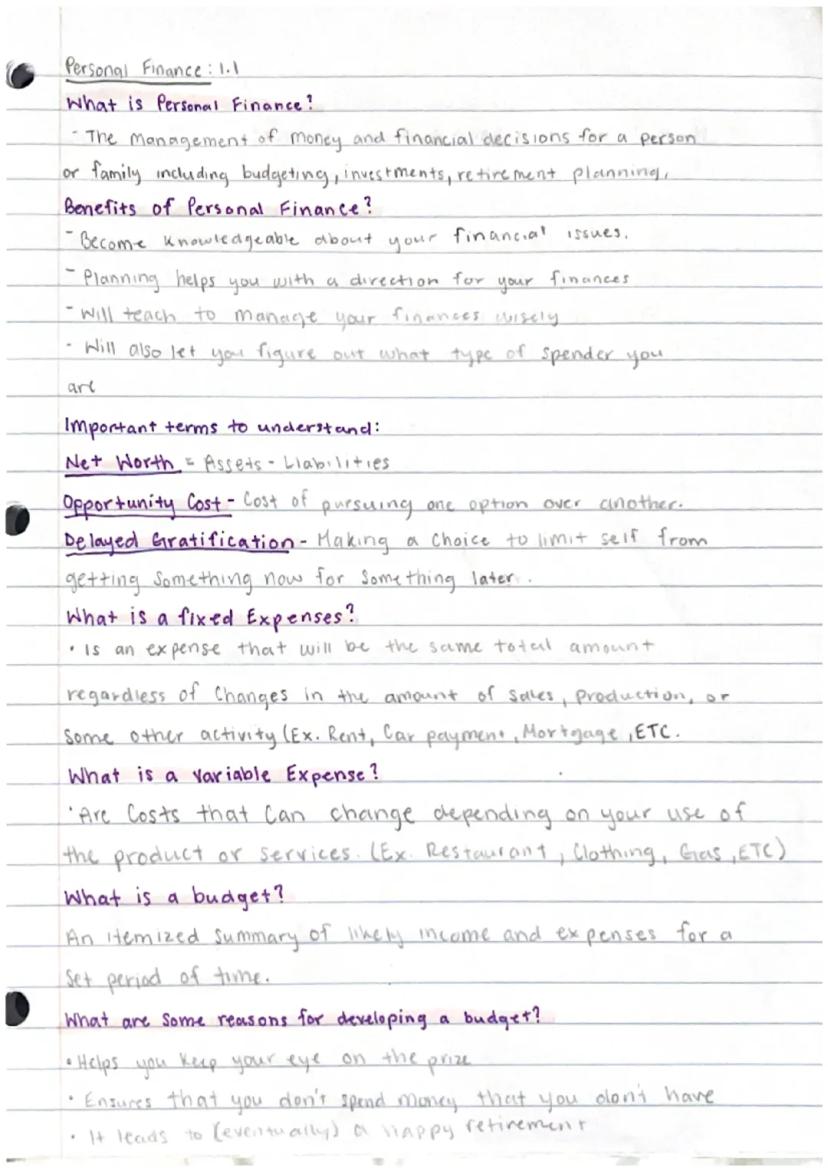 Personal Finance: 1.1
What is Personal Finance?
- The management of money and financial decisions for a person
or family including budgeting, investments, retirement planning.
Benefits of Personal Finance?
- Become knowledgeable about your financial issues.
- Planning helps you with a direction for your finances
- Will teach to manage your finances wisely
- Will also let you figure out what type of spender you
are
Important terms to understand:
Net Worth = Assets - Liabilities
Opportunity Cost - Cost of pursuing one option over another.
Delayed Gratification - Making a choice to limit self from
getting something now for something later.
What is a fixed Expenses?
• Is an expense that will be the same total amount
regardless of changes in the amount of sales, production, or
some other activity (Ex. Rent, Car payment, Mortgage, ETC.
What is a variable Expense?
• Are Costs that can change depending on your use of
the product or services. (Ex. Restaurant, Clothing, Gas, ETC)
What is a budget?
An itemized summary of likely income and expenses for a
set period of time.
What are some reasons for developing a budget?
• Helps you keep your eye on the prize
• Ensures that you don't spend money that you don't have
• It leads to (eventually) a happy retirement